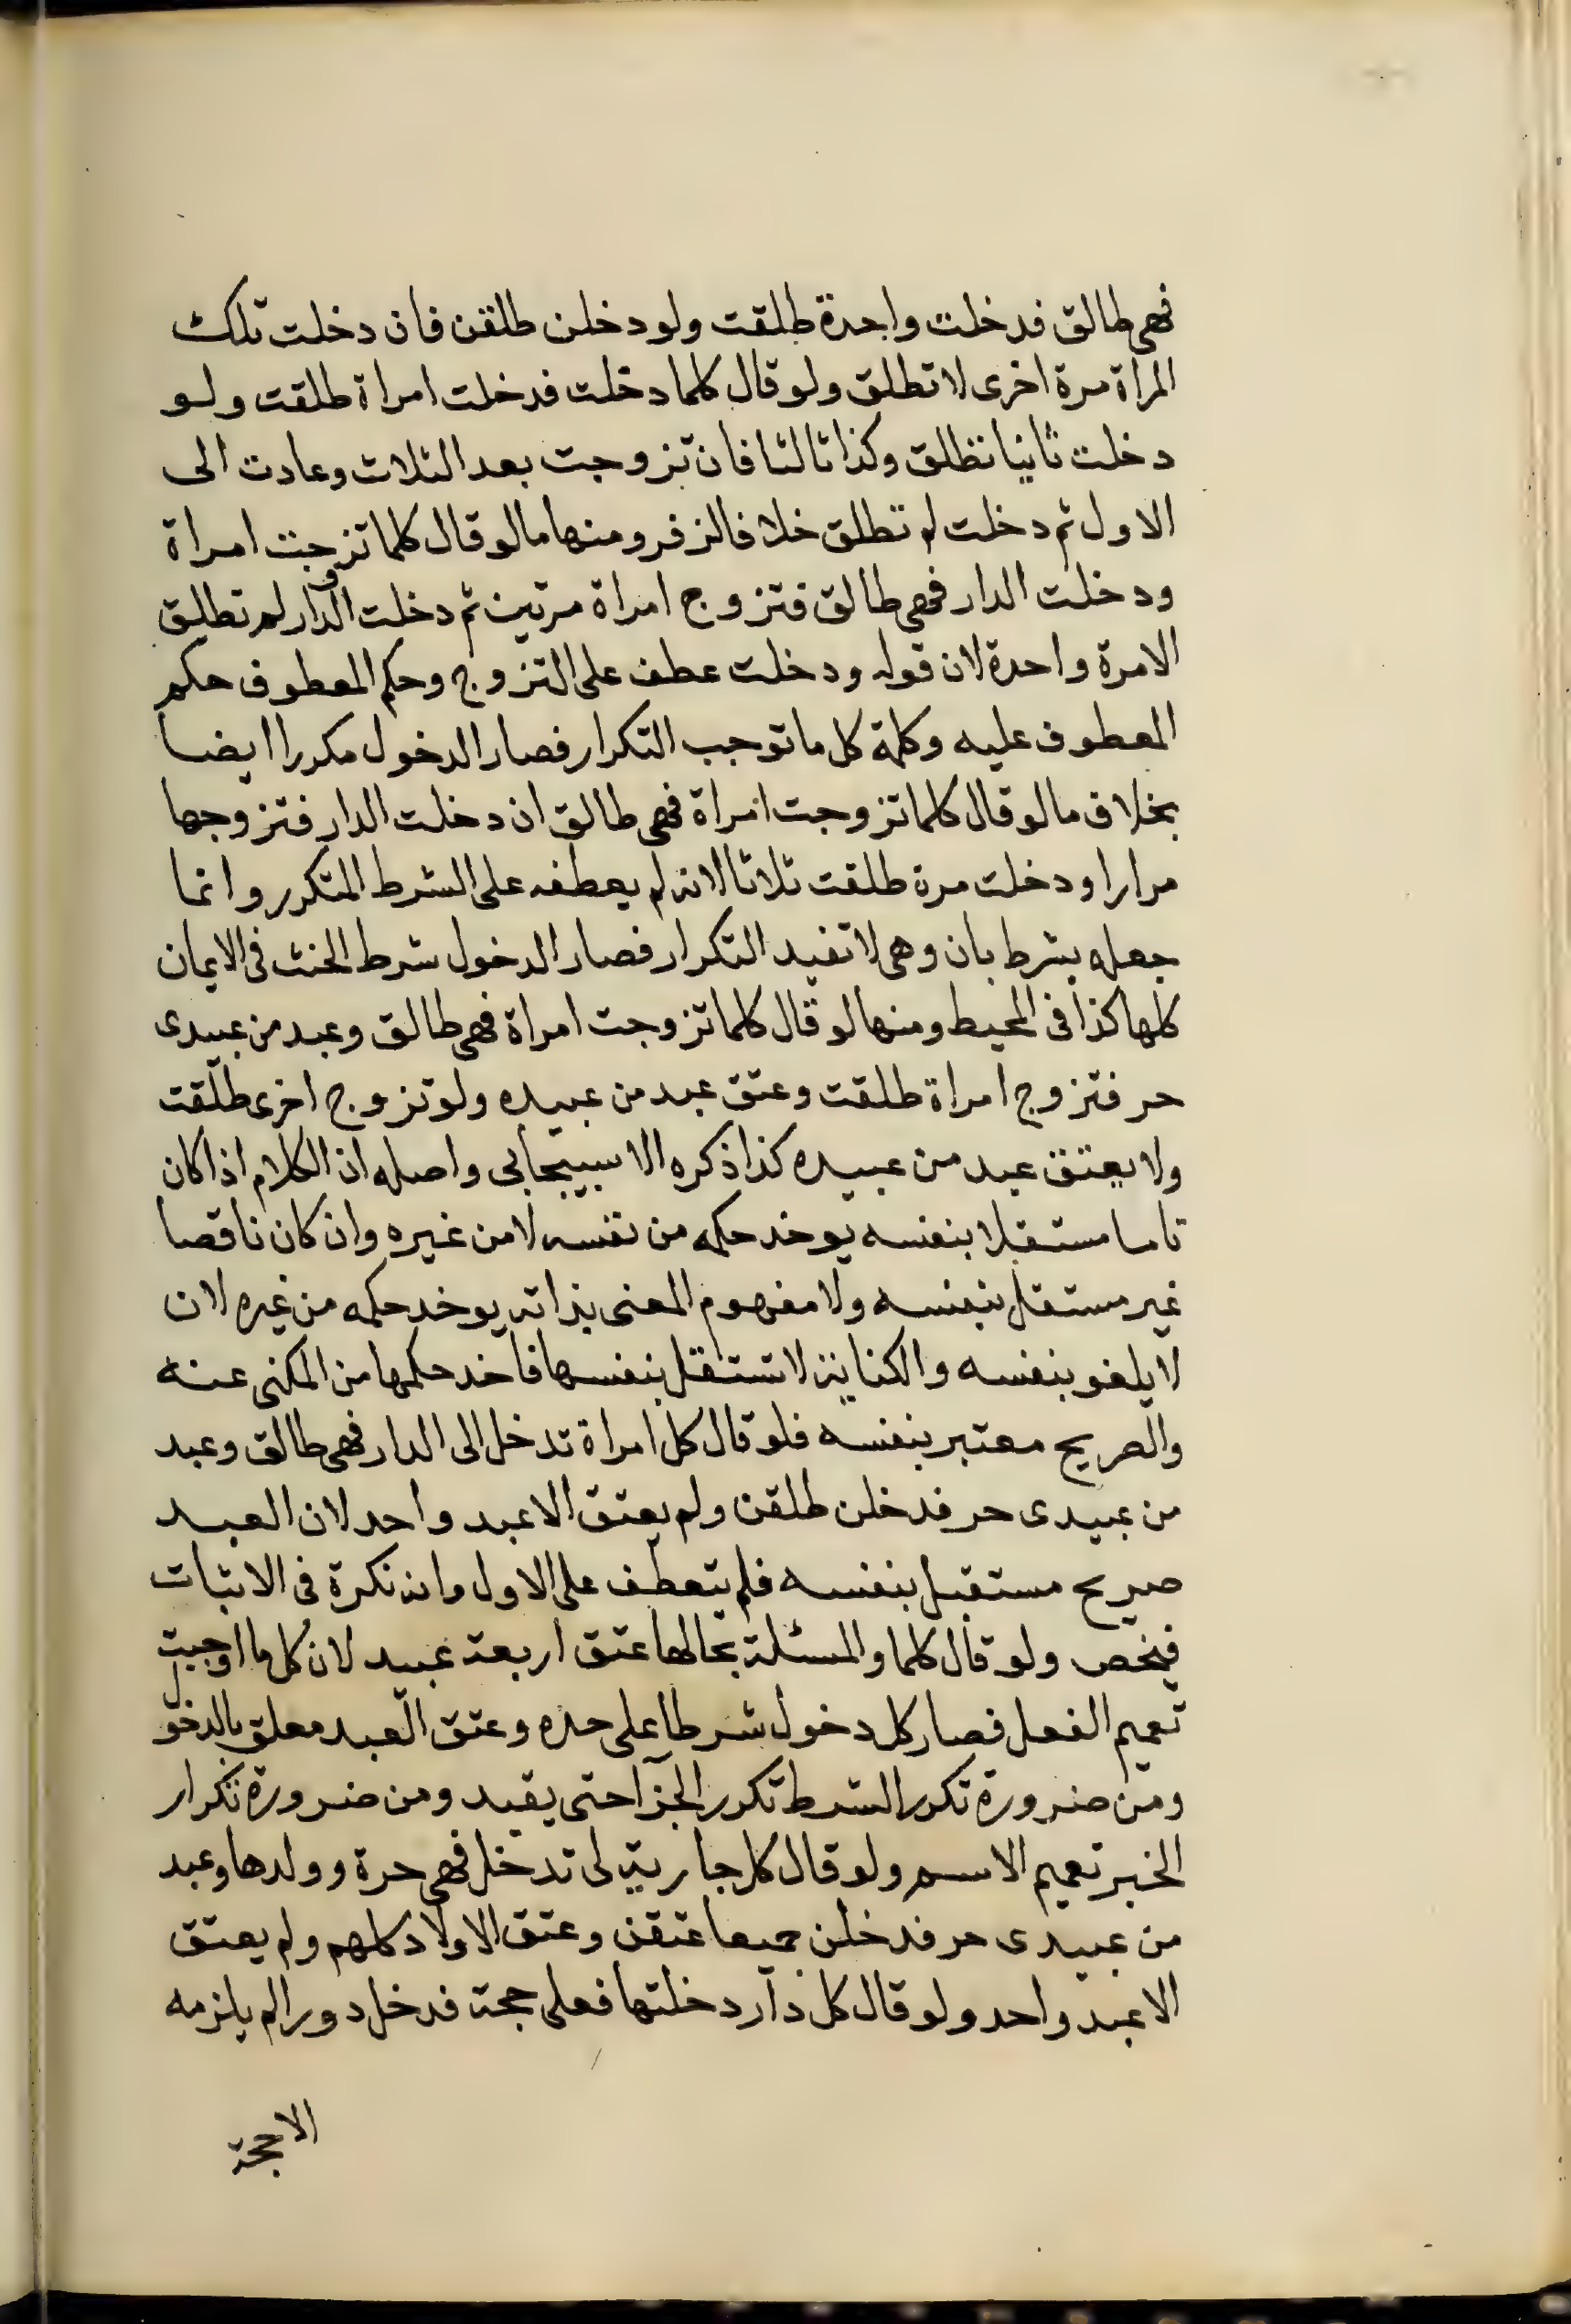 فهى طالق فدخلت واحدة طلقت ولو دخلن طلقن فان دخلت تلك
المراة مرة اخرى لا تطلق ولو قال كلما دخلت فدخلت امراة طلقت ولو
دخلت ثانيا تطلق وكذا ثالثا فان تزوجت بعد الثلاث وعادت الى
الاول ثم دخلت لم تطلق خلافا لزفر ومنها ما لو قال كلما تزوجت امراة
ودخلت الدار فهى طالق فتزوج امراة مرتين ثم دخلت الدار لم تطلق
الا مرة واحدة لان قوله ودخلت عطف على التزوج وحكم المعطوف حكم
المعطوف عليه وكلمة كل ما توجب التكرار فصار الدخول مكررا ايضا
بخلاف ما لو قال كلما تزوجت امراة فهى طالق ان دخلت الدار فتزوجها
مرارا ودخلت مرة طلقت ثلاثا لانه لم يعطفه على الشرط المتكرر وانما
جعله بشرط بان وهى لا تفيد التكرار فصار الدخول شرط الحنث فى الايمان
كلها كذا فى المحيط ومنها لو قال كلما تزوجت امراة فهى طالق وعبد من عبيدى
حر فتزوج امراة طلقت وعتق عبد من عبيده ولو تزوج اخرى طلقت
ولا يعتق عبد من عبيده كذا ذكره الاسبيجابى واصله ان الكلام اذا كان
تاما مستقلا بنفسه يوخد حكمه من نفسه لا من غيره وان كان ناقصا
غير مستقل بنفسه ولا مفهوم المعنى بذاته يوخد حكمه من غيره لان
لا يلغو بنفسه والكناية لا تستقل بنفسها فاخد حكمها من المكنى عنه
والصريح معتبر بنفسه فلو قال كل امراة تدخل الى الدار فهى طالق وعبد
من عبيدى حر فدخلن طلقن ولم يعتق الا عبد واحد لان العبد
صريح مستقل بنفسه فلم يتعطف على الاول وانه نكرة فى الاثبات
فيخص ولو قال كلما والمسئلة بحالها عتق اربعة عبيد لان كل ما اوجبت
تعميم الفعل فصار كل دخول شرطا على حده وعتق العبد معلق بالدخول
ومن ضرورة تكرر الشرط تكرر الجزا حتى يقيد ومن ضرورة تكرار
الخبر تعميم الاسم ولو قال كل جارية لى تدخل فهى حرة وولدها وعبد
من عبيدى حر فدخلن جميعا عتقن وعتق الاولاد كلهم ولم يعتق
الا عبد واحد ولو قال كل دار دخلتها فعلى حجة فدخل دورا لم يلزمه
الا حجة